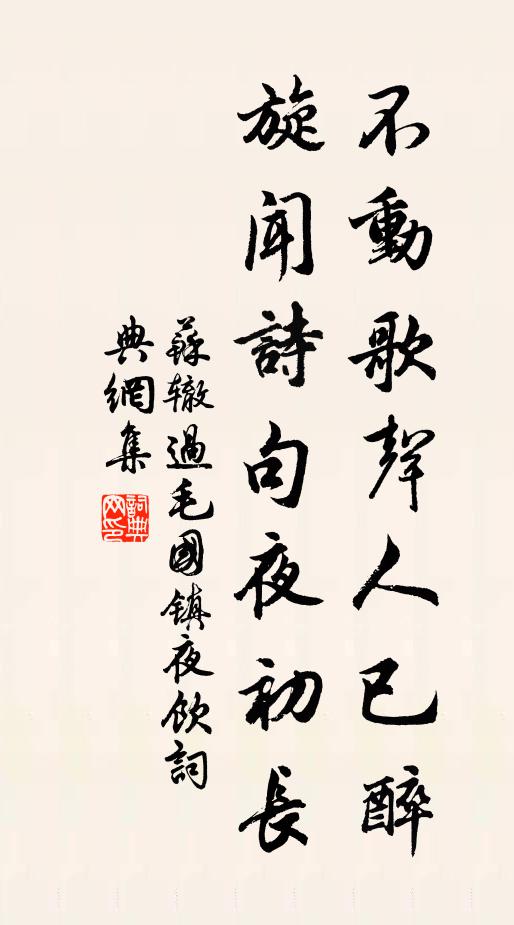 不動歌聲人已醉
旋聞詩句夜初長
蘇轍過毛國鎮夜飲詞
典網集
詞典网印